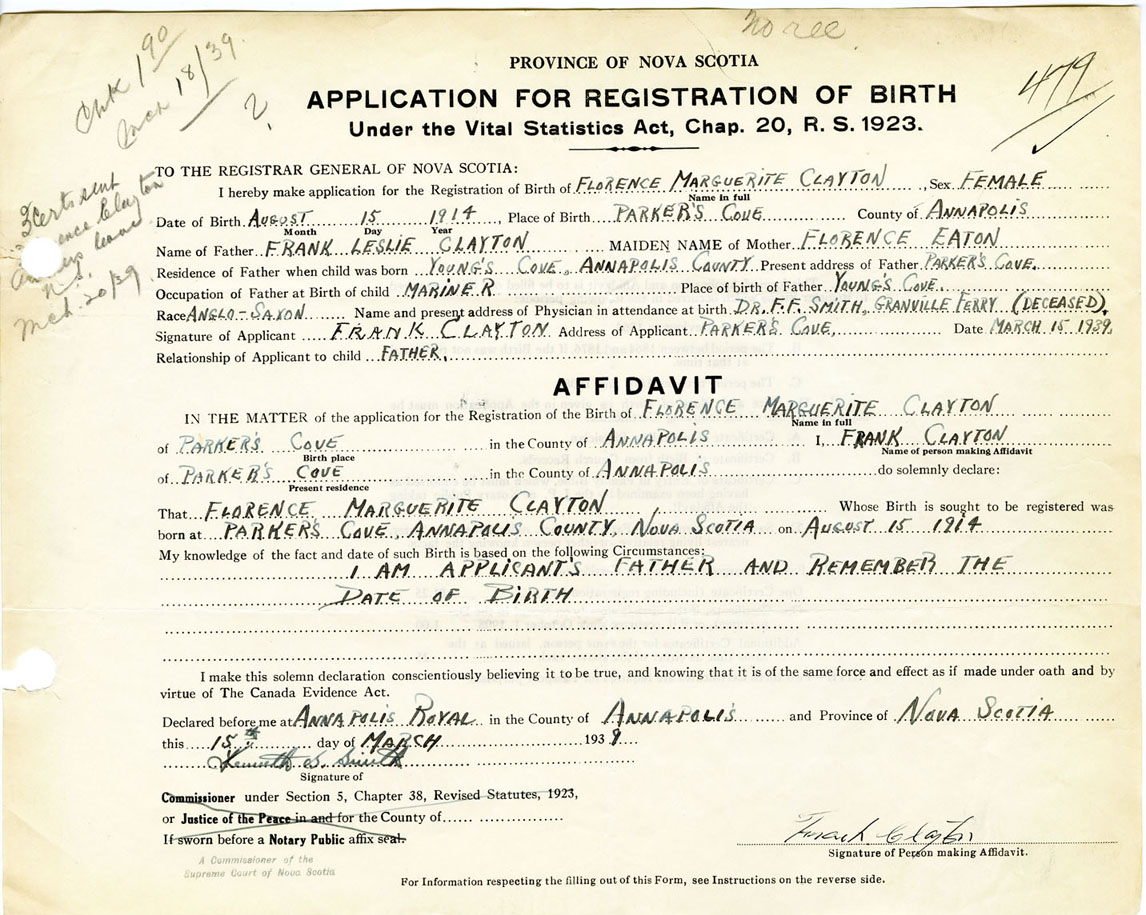 No rec
Chk 1 90
Mch 18/39
2
479
PROVINCE OF NOVA SCOTIA
APPLICATION FOR REGISTRATION OF BIRTH
Under the Vital Statistics Act, Chap. 20, R. S. 1923.
3 certs sent
Clayton
N.S.
Mch. 20/39.
TO THE REGISTRAR GENERAL OF NOVA SCOTIA:
I hereby make application for the Registration of Birth of FLORENCE MARGUERITE CLAYTON, Sex FEMALE
Name in full
Date of Birth AUGUST 15 1914, Place of Birth PARKER'S COVE County of ANNAPOLIS
Month Day Year
Name of Father FRANK LESLIE CLAYTON MAIDEN NAME of Mother FLORENCE EATON
Residence of Father when child was born YOUNG'S COVE, ANNAPOLIS COUNTY Present address of Father PARKER'S COVE.
Occupation of Father at Birth of child MARINER Place of birth of Father YOUNG'S COVE.
Race ANGLO-SAXON Name and present address of Physician in attendance at birth DR. F.F. SMITH, GRANVILLE FERRY (DECEASED).
Signature of Applicant FRANK CLAYTON Address of Applicant PARKER'S COVE, Date MARCH 15 1939.
Relationship of Applicant to child FATHER.
AFFIDAVIT
IN THE MATTER of the application for the Registration of the Birth of FLORENCE MARGUERITE CLAYTON
Name in full
of PARKER'S COVE in the County of ANNAPOLIS I, FRANK CLAYTON
Birth place Name of person making Affidavit
of PARKER'S COVE in the County of ANNAPOLIS do solemnly declare:
Present residence
That FLORENCE MARGUERITE CLAYTON Whose Birth is sought to be registered was
born at PARKER'S COVE, ANNAPOLIS COUNTY, NOVA SCOTIA on AUGUST 15 1914
My knowledge of the fact and date of such Birth is based on the following Circumstances:
I AM APPLICANT'S FATHER AND REMEMBER THE
DATE OF BIRTH
I make this solemn declaration conscientiously believing it to be true, and knowing that it is of the same force and effect as if made under oath and by
virtue of The Canada Evidence Act.
Declared before me at ANNAPOLIS ROYAL in the County of ANNAPOLIS and Province of NOVA SCOTIA
this 15th day of MARCH 1939.
Kenneth W. Smith
Signature of
Commissioner under Section 5, Chapter 38, Revised Statutes, 1923,
or Justice of the Peace in and for the County of
If sworn before a Notary Public affix seal.
A Commissioner of the
Supreme Court of Nova Scotia
Frank Clayton
Signature of Person making Affidavit.
For Information respecting the filling out of this Form, see Instructions on the reverse side.